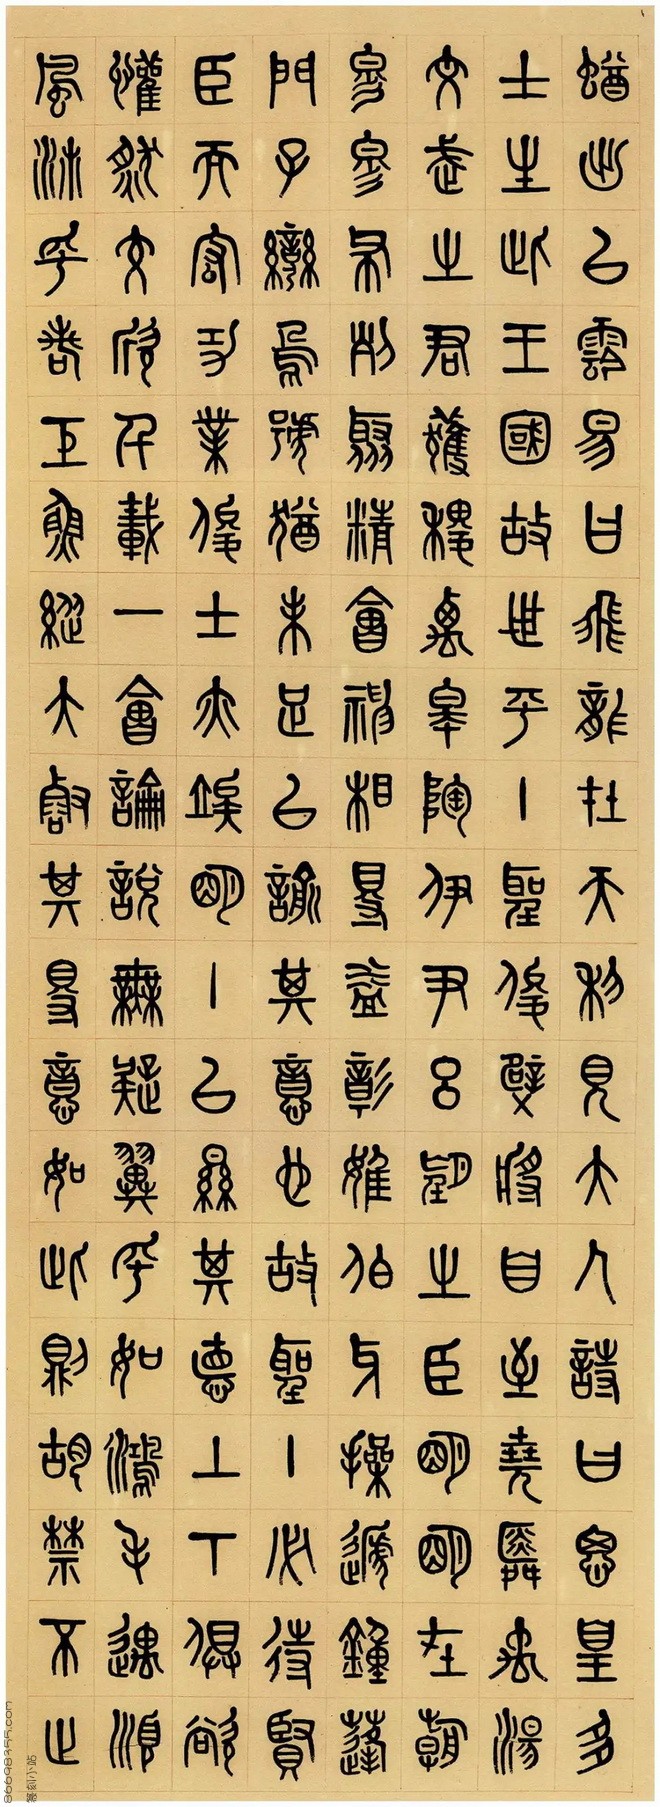 蝤出以陰易曰飛龍在天利見大人詩曰思皇多
士生此王國故世平主聖俊乂將自至堯舜禹湯
文武之君獲稷契皋陶伊尹呂望之臣明明在朝
穆穆布列聚精會神相得益彰雖伯牙操遞鐘蓬
門子彎烏號猶未足以諭其意也故聖主必待賢
臣而宏功業俊士亦竢明主以顯其德上下俱欲
懽然交欣千載一會論說無疑翼乎如鴻毛遇順
風沛乎若巨魚縱大壑其得意如此則胡禁不止
86698355.com
篆刻小站